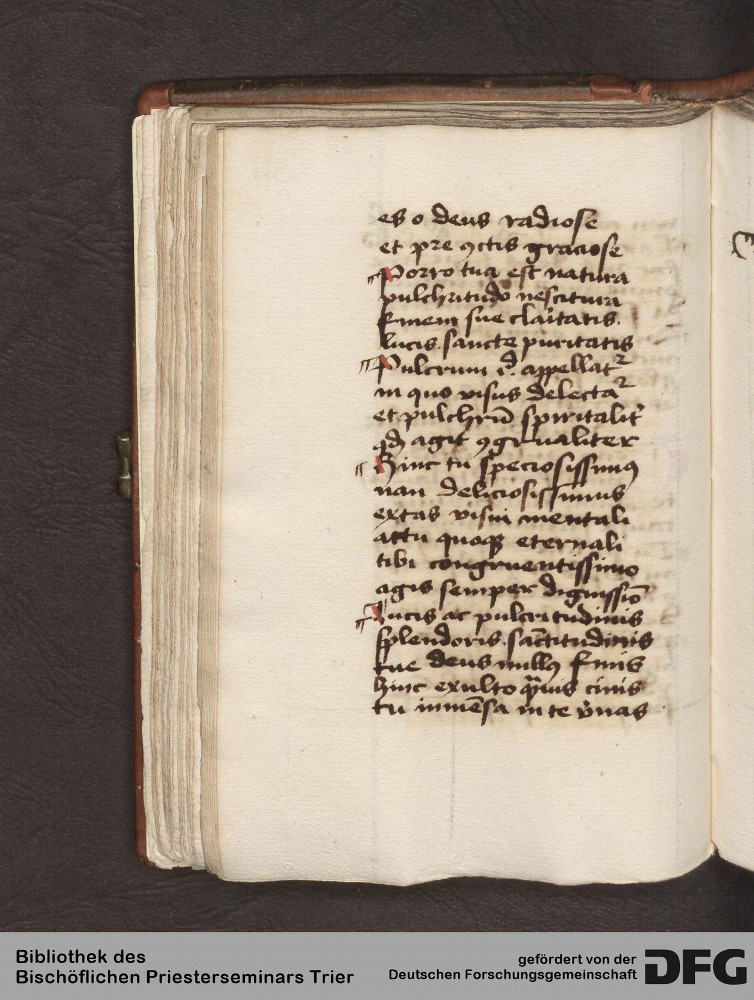 es o deus radiose
et pre ꝯctis graciose
Porro tua est natura
pulchritudo nescitura
finem sue claritatis.
lucis. sancte puritatis
Pulcrum appellatꝛ
in quo visus delectaꝛ
et pulchrū spiritalit̉
qd̕ agit ꝯgrualiter
Hinc tu speciosissimꝯ
nan deliciosissimus
extas visui mentali
actu quoqꝫ eternali
tibi congruentissimo
agis semper dignissīo
Lucis ac pulcritudinis
splendoris. sāctitudinis
tue deus nullꝯ finis
hinc exulto q̄mis cinis
tu inmēsa in te v̉nas
Bibliothek des
Bischöflichen Priesterseminars Trier
gefördert von der
Deutschen Forschungsgemeinschaft
DFG